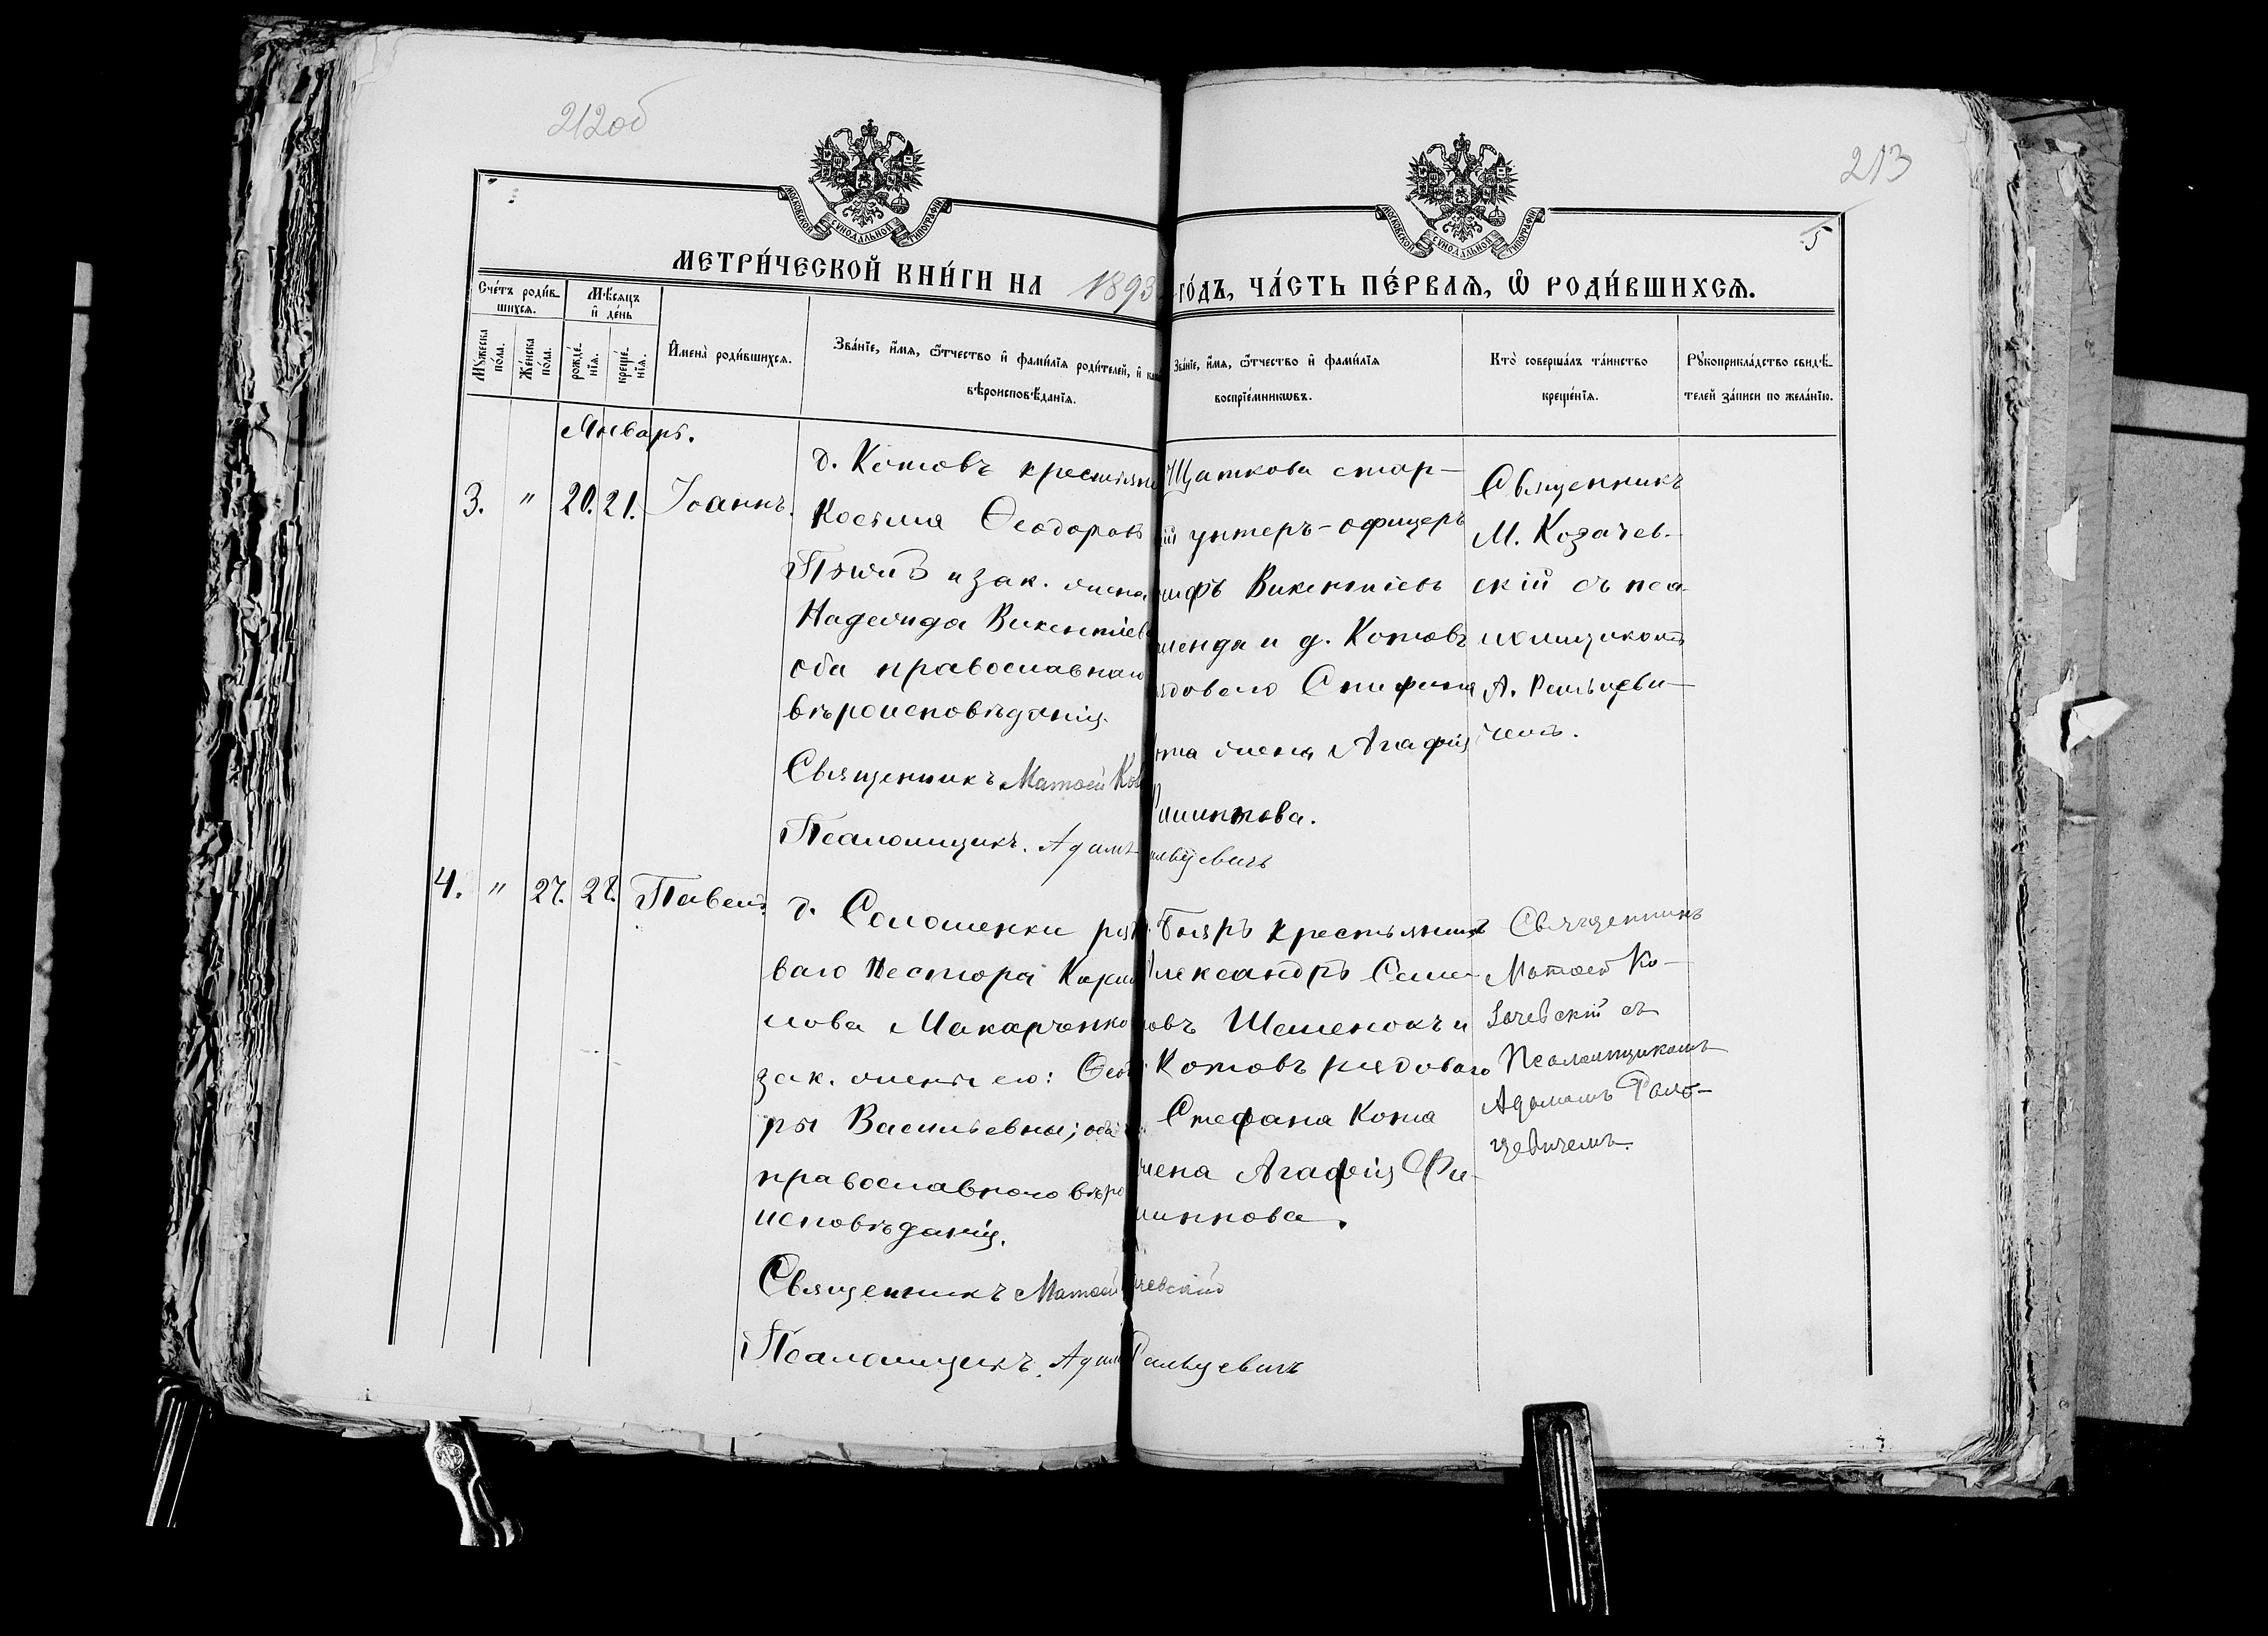 212об
213
5
МОСКОВСКОЙ СѴНОДАЛЬНОЙ ТИПОГРАФІИ
МОСКОВСКОЙ СѴНОДАЛЬНОЙ ТИПОГРАФІИ
МЕТРИ́ЧЕСКОЙ КНИ́ГИ НА 1893
ГО́ДЪ, ЧА́СТЬ ПЕ́РВАѦ, Ѡ҆ РОДИ́ВШИХСѦ.
Сче́тъ роди́в-
шихсѧ.
Мꙋ́жеска
по́ла.
Же́нска
по́ла.
Мѣ́сѧцъ
и҆ де́нь
рожде́-
нїѧ.
креще́-
нїѧ.
И҆мена̀ роди́вшихсѧ.
Зва́нїе, и҆́мѧ, ѻ҆́тчество и҆ фами́лїѧ роди́телей, и҆
вѣроисповѣ́данїѧ.
Зва́нїе, и҆́мѧ, ѻ҆́тчество и҆ фами́лїѧ
воспрїе́мникѡвъ.
Кто̀ соверша́лъ та́инство
креще́нїѧ.
Рꙋкоприкла́дство свидѣ́-
телей за́писи по жела́нїю.
Январь.
3. " 20. 21. Іоаннъ.
д. Котовъ крестьяни
Косьма Ѳеодоровъ
и зак. жена
Надежда Викентіев
оба православнаго
вѣроисповѣданія.
Священникъ Матѳей Коз
Псаломщикъ. Адамъ
Щаткова стар-
ій унтеръ-офицеръ
сифъ Викентіевъ
и д. Котовъ
ядового Стефана
ота жена Агафія
Филиппова.
альцевичъ
Священникъ
М. Козачев-
скій съ пса-
ломщикомъ
А. Ральцеви-
чемъ.
4. " 27. 28. Павелъ.
д. Соломенки ряд
ваго Нестора Кирил
лова Макарченко
зак. жены его: Ѳеод
ры Васильевны; оба
православнаго вѣро
исповѣданія.
Священникъ Матѳей
Псаломщикъ. Адамъ
Бояръ крестьянинъ
Александръ Семе-
овъ Шеменокъ и
Котовъ рядоваго
Стефана Кота
жена Агафія Фи-
липпова.
чевскій
Ральцевичъ
Священникъ
Матѳей Ко-
зачевскій съ
Псаломщикомъ
Адамомъ Раль-
цевичемъ.